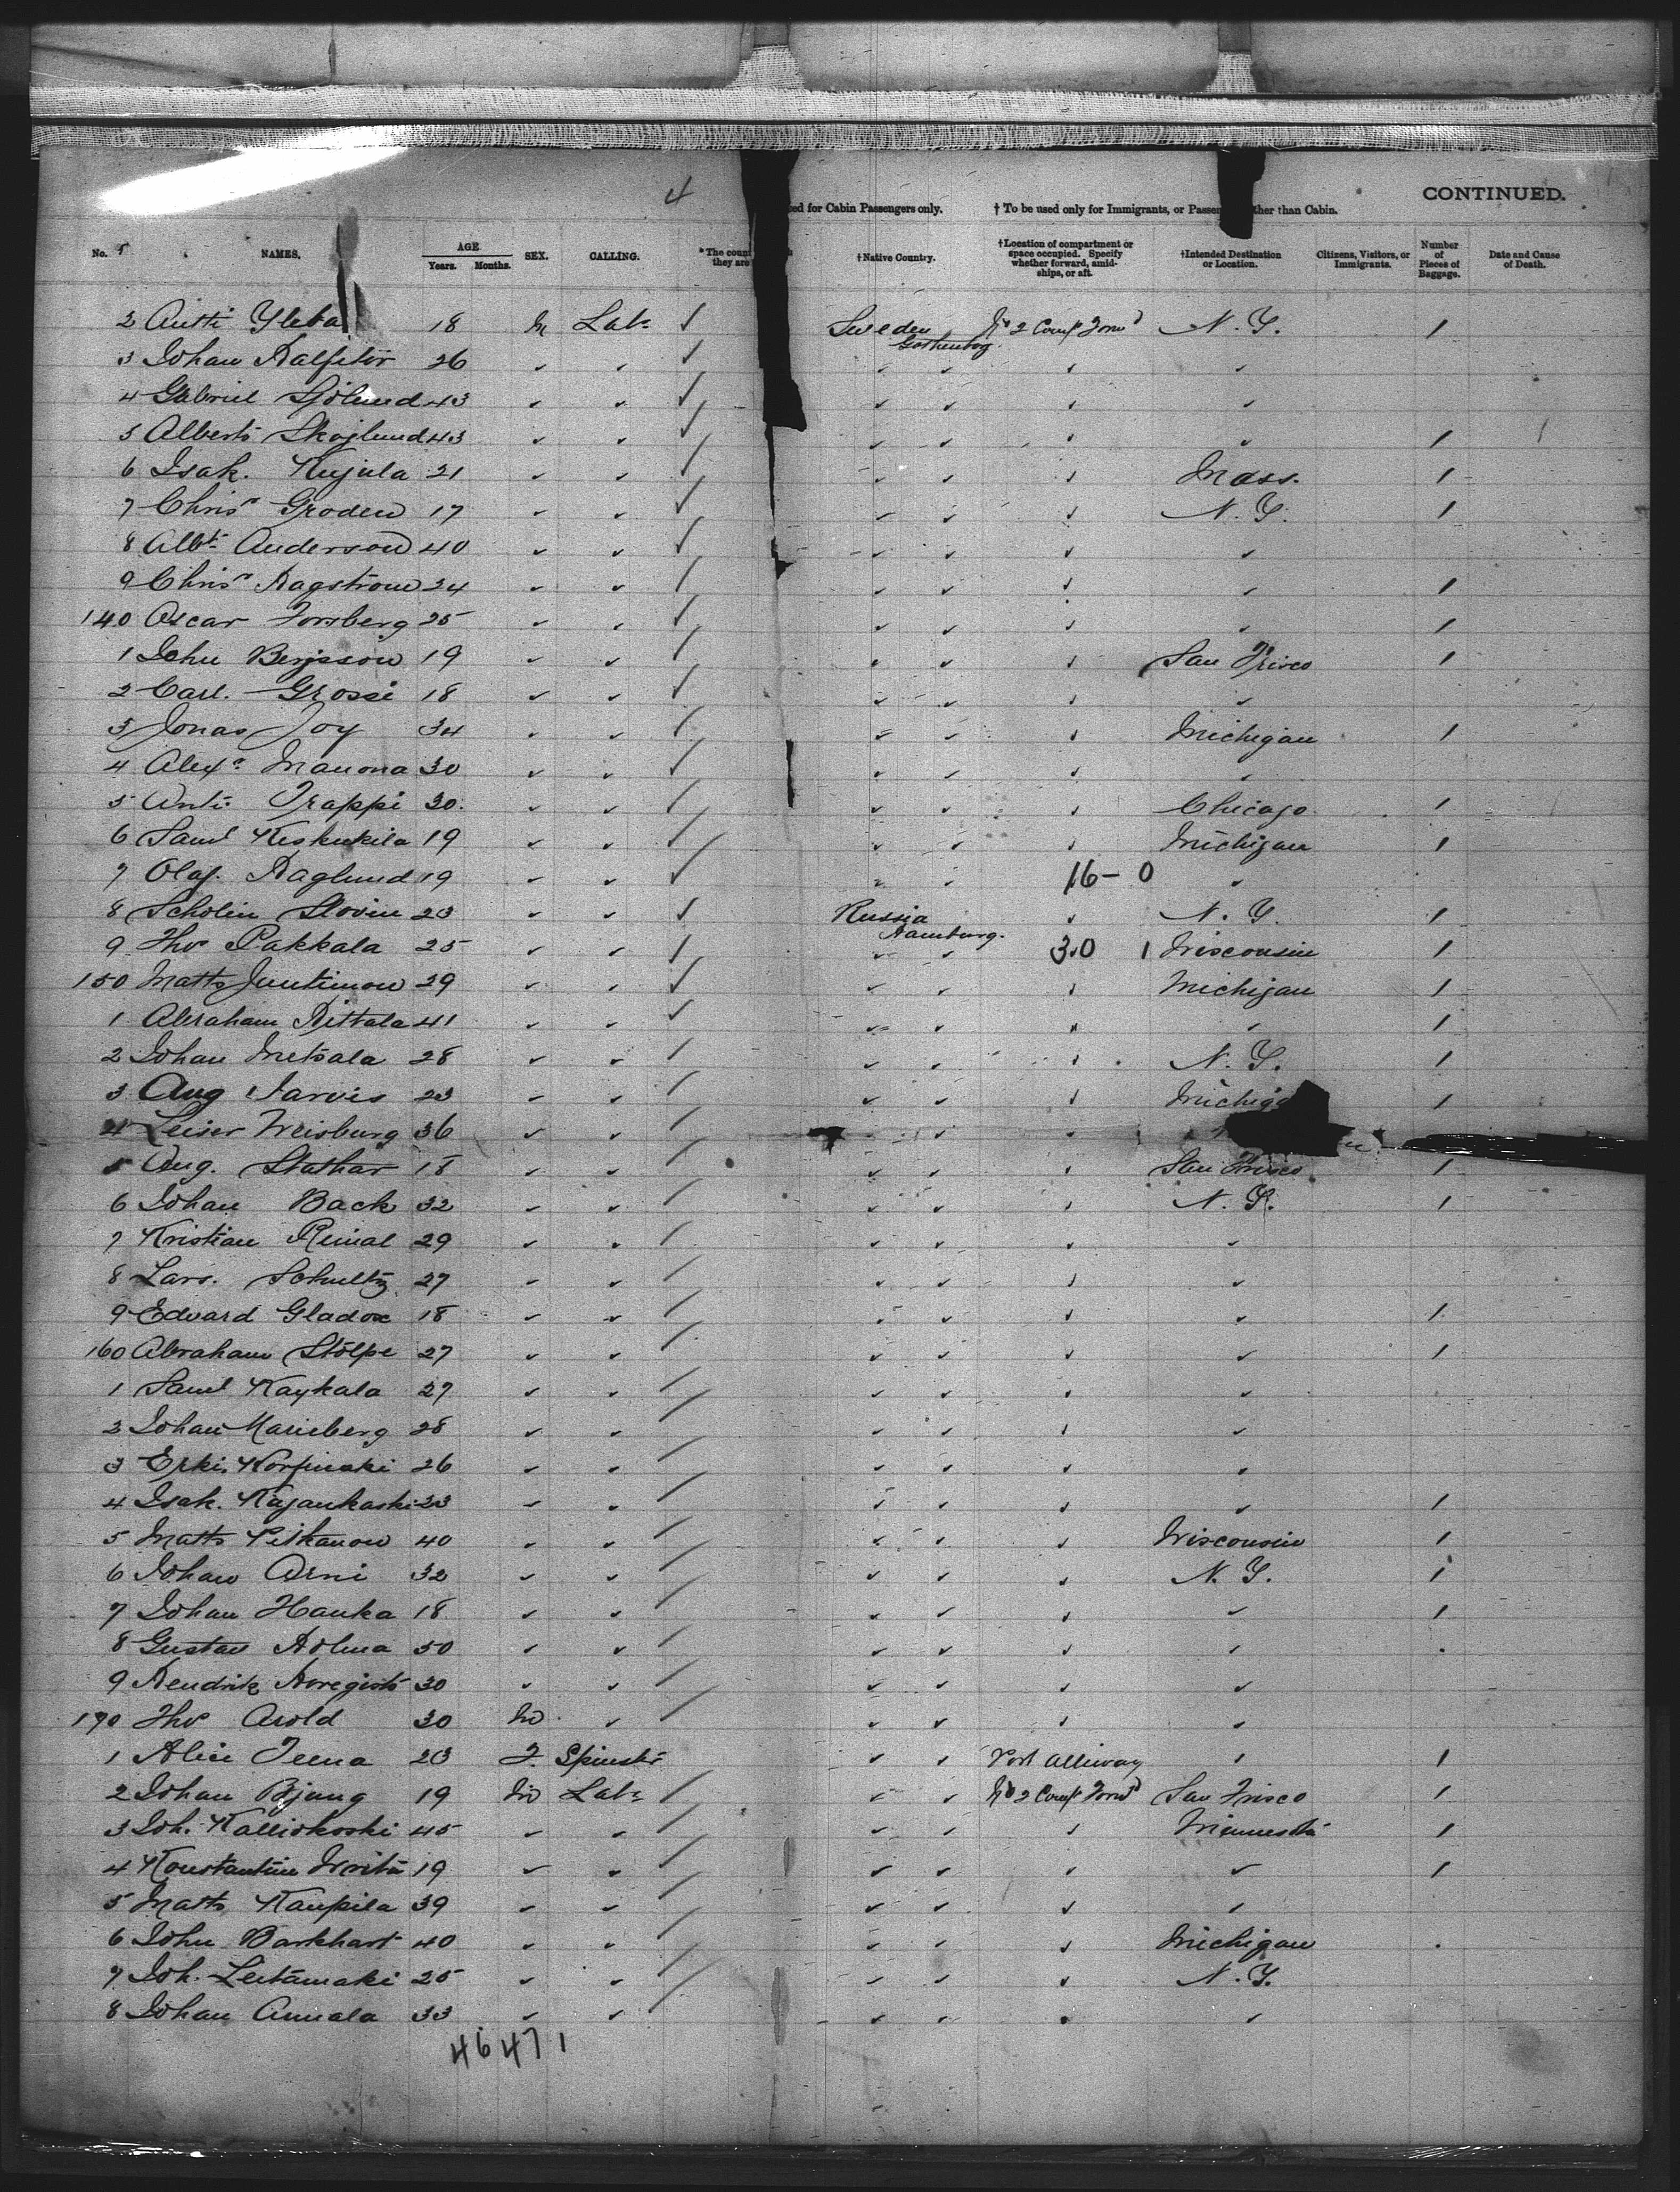 4
CONTINUED.
ed for Cabin Passengers only. † To be used only for Immigrants, or Passen ther than Cabin.
No. NAMES. AGE. Years. Months. SEX. CALLING. *The coun they are †Native Country. †Location of compartment or space occupied. Specify whether forward, amid-ships, or aft. †Intended Destination or Location. Citizens, Visitors, or Immigrants. Number of Pieces of Baggage. Date and Cause of Death.
2 Antti 18 M Labr ✓ Sweden Gothenborg No 2 Compt Forwd N.Y. 1
3 Johan 26 ✓ ✓ ✓ ✓ ✓ ✓ ✓
4 Gabriel Sjölund 43 ✓ ✓ ✓ ✓ ✓ ✓ ✓
5 Alberts Skojlund 43 ✓ ✓ ✓ ✓ ✓ ✓ ✓ 1
6 Isak. Kujala 21 ✓ ✓ ✓ ✓ ✓ ✓ Mass. 1
7 Chrisn Groden 17 ✓ ✓ ✓ ✓ ✓ ✓ N.Y. 1
8 Albt Anderson 40 ✓ ✓ ✓ ✓ ✓ ✓ ✓
9 Chrisn Hagström 24 ✓ ✓ ✓ ✓ ✓ ✓ ✓ 1
140 Oscar Forsberg 25 ✓ ✓ ✓ ✓ ✓ ✓ ✓ 1
1 John Berjsson 19 ✓ ✓ ✓ ✓ ✓ ✓ San Frisco 1
2 Carl. Grossi 18 ✓ ✓ ✓ ✓ ✓ ✓ ✓
3 Jonas Joy 34 ✓ ✓ ✓ ✓ ✓ ✓ Michigan 1
4 Alexr Manona 30 ✓ ✓ ✓ ✓ ✓ ✓ ✓
5 Anti Trappi 30. ✓ ✓ ✓ ✓ ✓ ✓ Chicago. 1
6 Saml Keskukila 19 ✓ ✓ ✓ ✓ ✓ ✓ Michigan 1
7 Olaf. Haglund 19 ✓ ✓ ✓ ✓ ✓ 16-0 ✓
8 Scholin Slovin 23 ✓ ✓ ✓ Russia Hamburg. ✓ N.Y. 1
9 Pakkala 25 ✓ ✓ ✓ ✓ ✓ 30 1 Wisconsin 1
150 Matts Juntinow 29 ✓ ✓ ✓ ✓ ✓ ✓ Michigan 1
1 Abraham Hittala 41 ✓ ✓ ✓ ✓ ✓ ✓ ✓ 1
2 Johan Metsala 28 ✓ ✓ ✓ ✓ ✓ ✓ N.Y. 1
3 Aug Jarvis 23 ✓ ✓ ✓ ✓ ✓ ✓ Michiga 1
4 Leiser Weisburg 36 ✓ ✓ ✓ ✓ ✓
5 Aug. Stathar 18 ✓ ✓ ✓ ✓ ✓ ✓ San Frisco 1
6 Johan Back 32 ✓ ✓ ✓ ✓ ✓ ✓ N.Y. 1
7 Kristian Reinal 29 ✓ ✓ ✓ ✓ ✓ ✓ ✓
8 Lars. Schultz 27 ✓ ✓ ✓ ✓ ✓ ✓ ✓
9 Edvard Gladox 18 ✓ ✓ ✓ ✓ ✓ ✓ ✓ 1
160 Abraham Stolpe 27 ✓ ✓ ✓ ✓ ✓ ✓ ✓ 1
1 Saml Kaykala 27 ✓ ✓ ✓ ✓ ✓ ✓ ✓
2 Johan Marieberg 28 ✓ ✓ ✓ ✓ ✓ ✓ ✓
3 Erki. 26 ✓ ✓ ✓ ✓ ✓ ✓ ✓
4 Isak. Kajankaski 23 ✓ ✓ ✓ ✓ ✓ ✓ ✓ 1
5 Matts Pitkanow 40 ✓ ✓ ✓ ✓ ✓ ✓ Wisconsin 1
6 Johan Arni 32 ✓ ✓ ✓ ✓ ✓ ✓ N.Y. 1
7 Johan Hanka 18 ✓ ✓ ✓ ✓ ✓ ✓ ✓ 1
8 Gustav Holma 50 ✓ ✓ ✓ ✓ ✓ ✓ ✓
9 Hendrik 30 ✓ ✓ ✓ ✓ ✓ ✓ ✓
170 Arold 30 M ✓ ✓ ✓ ✓ ✓ ✓
1 Teena 23 F. Spinstr ✓ ✓ Port Alleway ✓ 1
2 Johan Bjang 19 M Labr ✓ ✓ No 2 Compt Forwd San Frisco 1
3 Joh. Kalliokoski 45 ✓ ✓ ✓ ✓ ✓ ✓ Minnesota 1
4 Konstantin 19 ✓ ✓ ✓ ✓ ✓ ✓ ✓ 1
5 Matts Kaupila 39 ✓ ✓ ✓ ✓ ✓ ✓ ✓
6 John Barkhart 40 ✓ ✓ ✓ ✓ ✓ ✓ Michigan
7 Joh. Leitamaki 25 ✓ ✓ ✓ ✓ ✓ ✓ N.Y.
8 Johan Annala 33 ✓ ✓ ✓ ✓ ✓ ✓
46 47 1